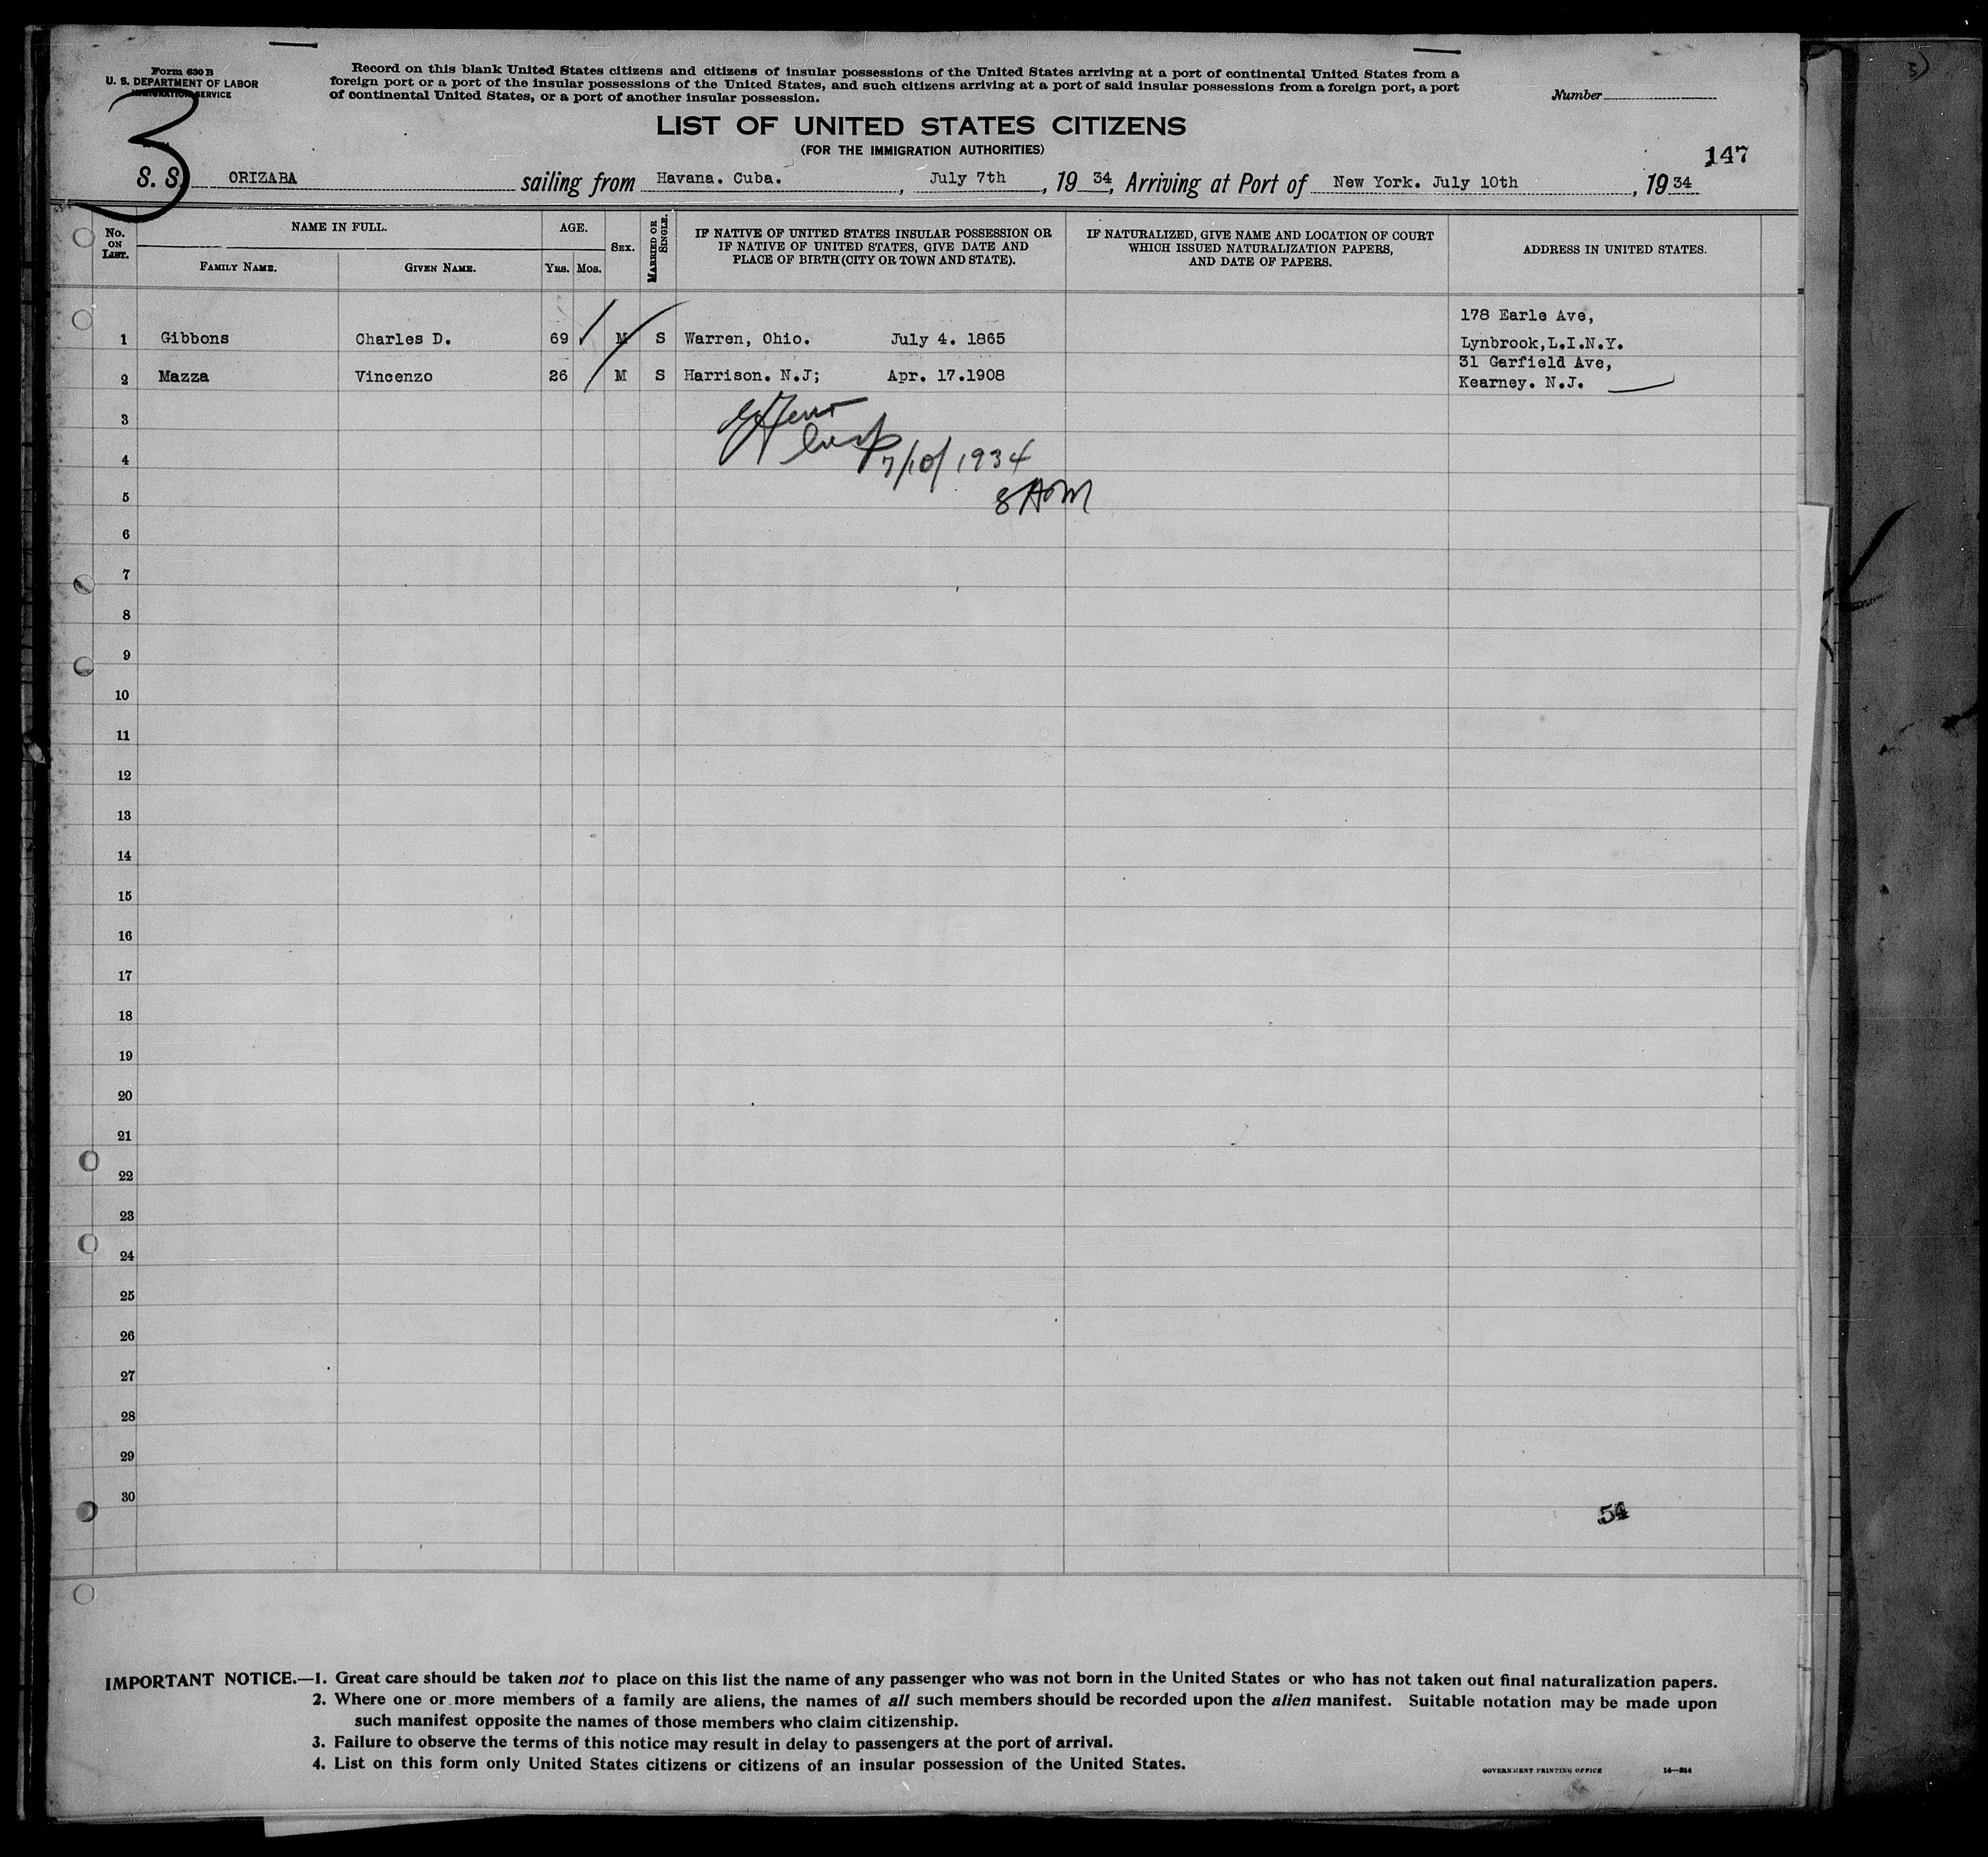 Form 630 B
U. S. DEPARTMENT OF LABOR
IMMIGRATION SERVICE
Record on this blank United States citizens and citizens of insular possessions of the United States arriving at a port of continental United States from a
foreign port or a port of the insular possessions of the United States, and such citizens arriving at a port of said insular possessions from a foreign port, a port
of continental United States, or a port of another insular possession.
Number
3
LIST OF UNITED STATES CITIZENS
(FOR THE IMMIGRATION AUTHORITIES)
147
S. S. ORIZABA sailing from Havana. Cuba. , July 7th , 19 34, Arriving at Port of New York. July 10th , 19 34
No. ON LIST.
NAME IN FULL.
FAMILY NAME. GIVEN NAME.
AGE.
YRS. MOS.
SEX.
MARRIED OR SINGLE.
IF NATIVE OF UNITED STATES INSULAR POSSESSION OR
IF NATIVE OF UNITED STATES, GIVE DATE AND
PLACE OF BIRTH (CITY OR TOWN AND STATE).
IF NATURALIZED, GIVE NAME AND LOCATION OF COURT
WHICH ISSUED NATURALIZATION PAPERS,
AND DATE OF PAPERS.
ADDRESS IN UNITED STATES.
178 Earle Ave,
1 Gibbons Charles D. 69 M S Warren, Ohio. July 4. 1865 Lynbrook,L.I.N.Y.
31 Garfield Ave,
2 Mazza Vincenzo 26 M S Harrison. N.J; Apr. 17.1908 Kearney. N.J.
3
4 7/10/1934
5 8 AM
6
7
8
9
10
11
12
13
14
15
16
17
18
19
20
21
22
23
24
25
26
27
28
29
30
54
IMPORTANT NOTICE.—1. Great care should be taken not to place on this list the name of any passenger who was not born in the United States or who has not taken out final naturalization papers.
2. Where one or more members of a family are aliens, the names of all such members should be recorded upon the alien manifest. Suitable notation may be made upon
such manifest opposite the names of those members who claim citizenship.
3. Failure to observe the terms of this notice may result in delay to passengers at the port of arrival.
4. List on this form only United States citizens or citizens of an insular possession of the United States.
GOVERNMENT PRINTING OFFICE 14—214